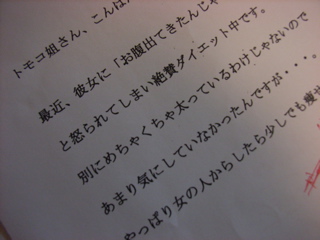 トモコ姐さん、こんば
最近、彼女に「お腹出てきたんじゃ
と怒られてしまい絶賛ダイエット中です。
別にめちゃくちゃ太っているわけじゃないので
あまり気にしていなかったんですが・・・。
やっぱり女の人からしたら少しでも痩せ